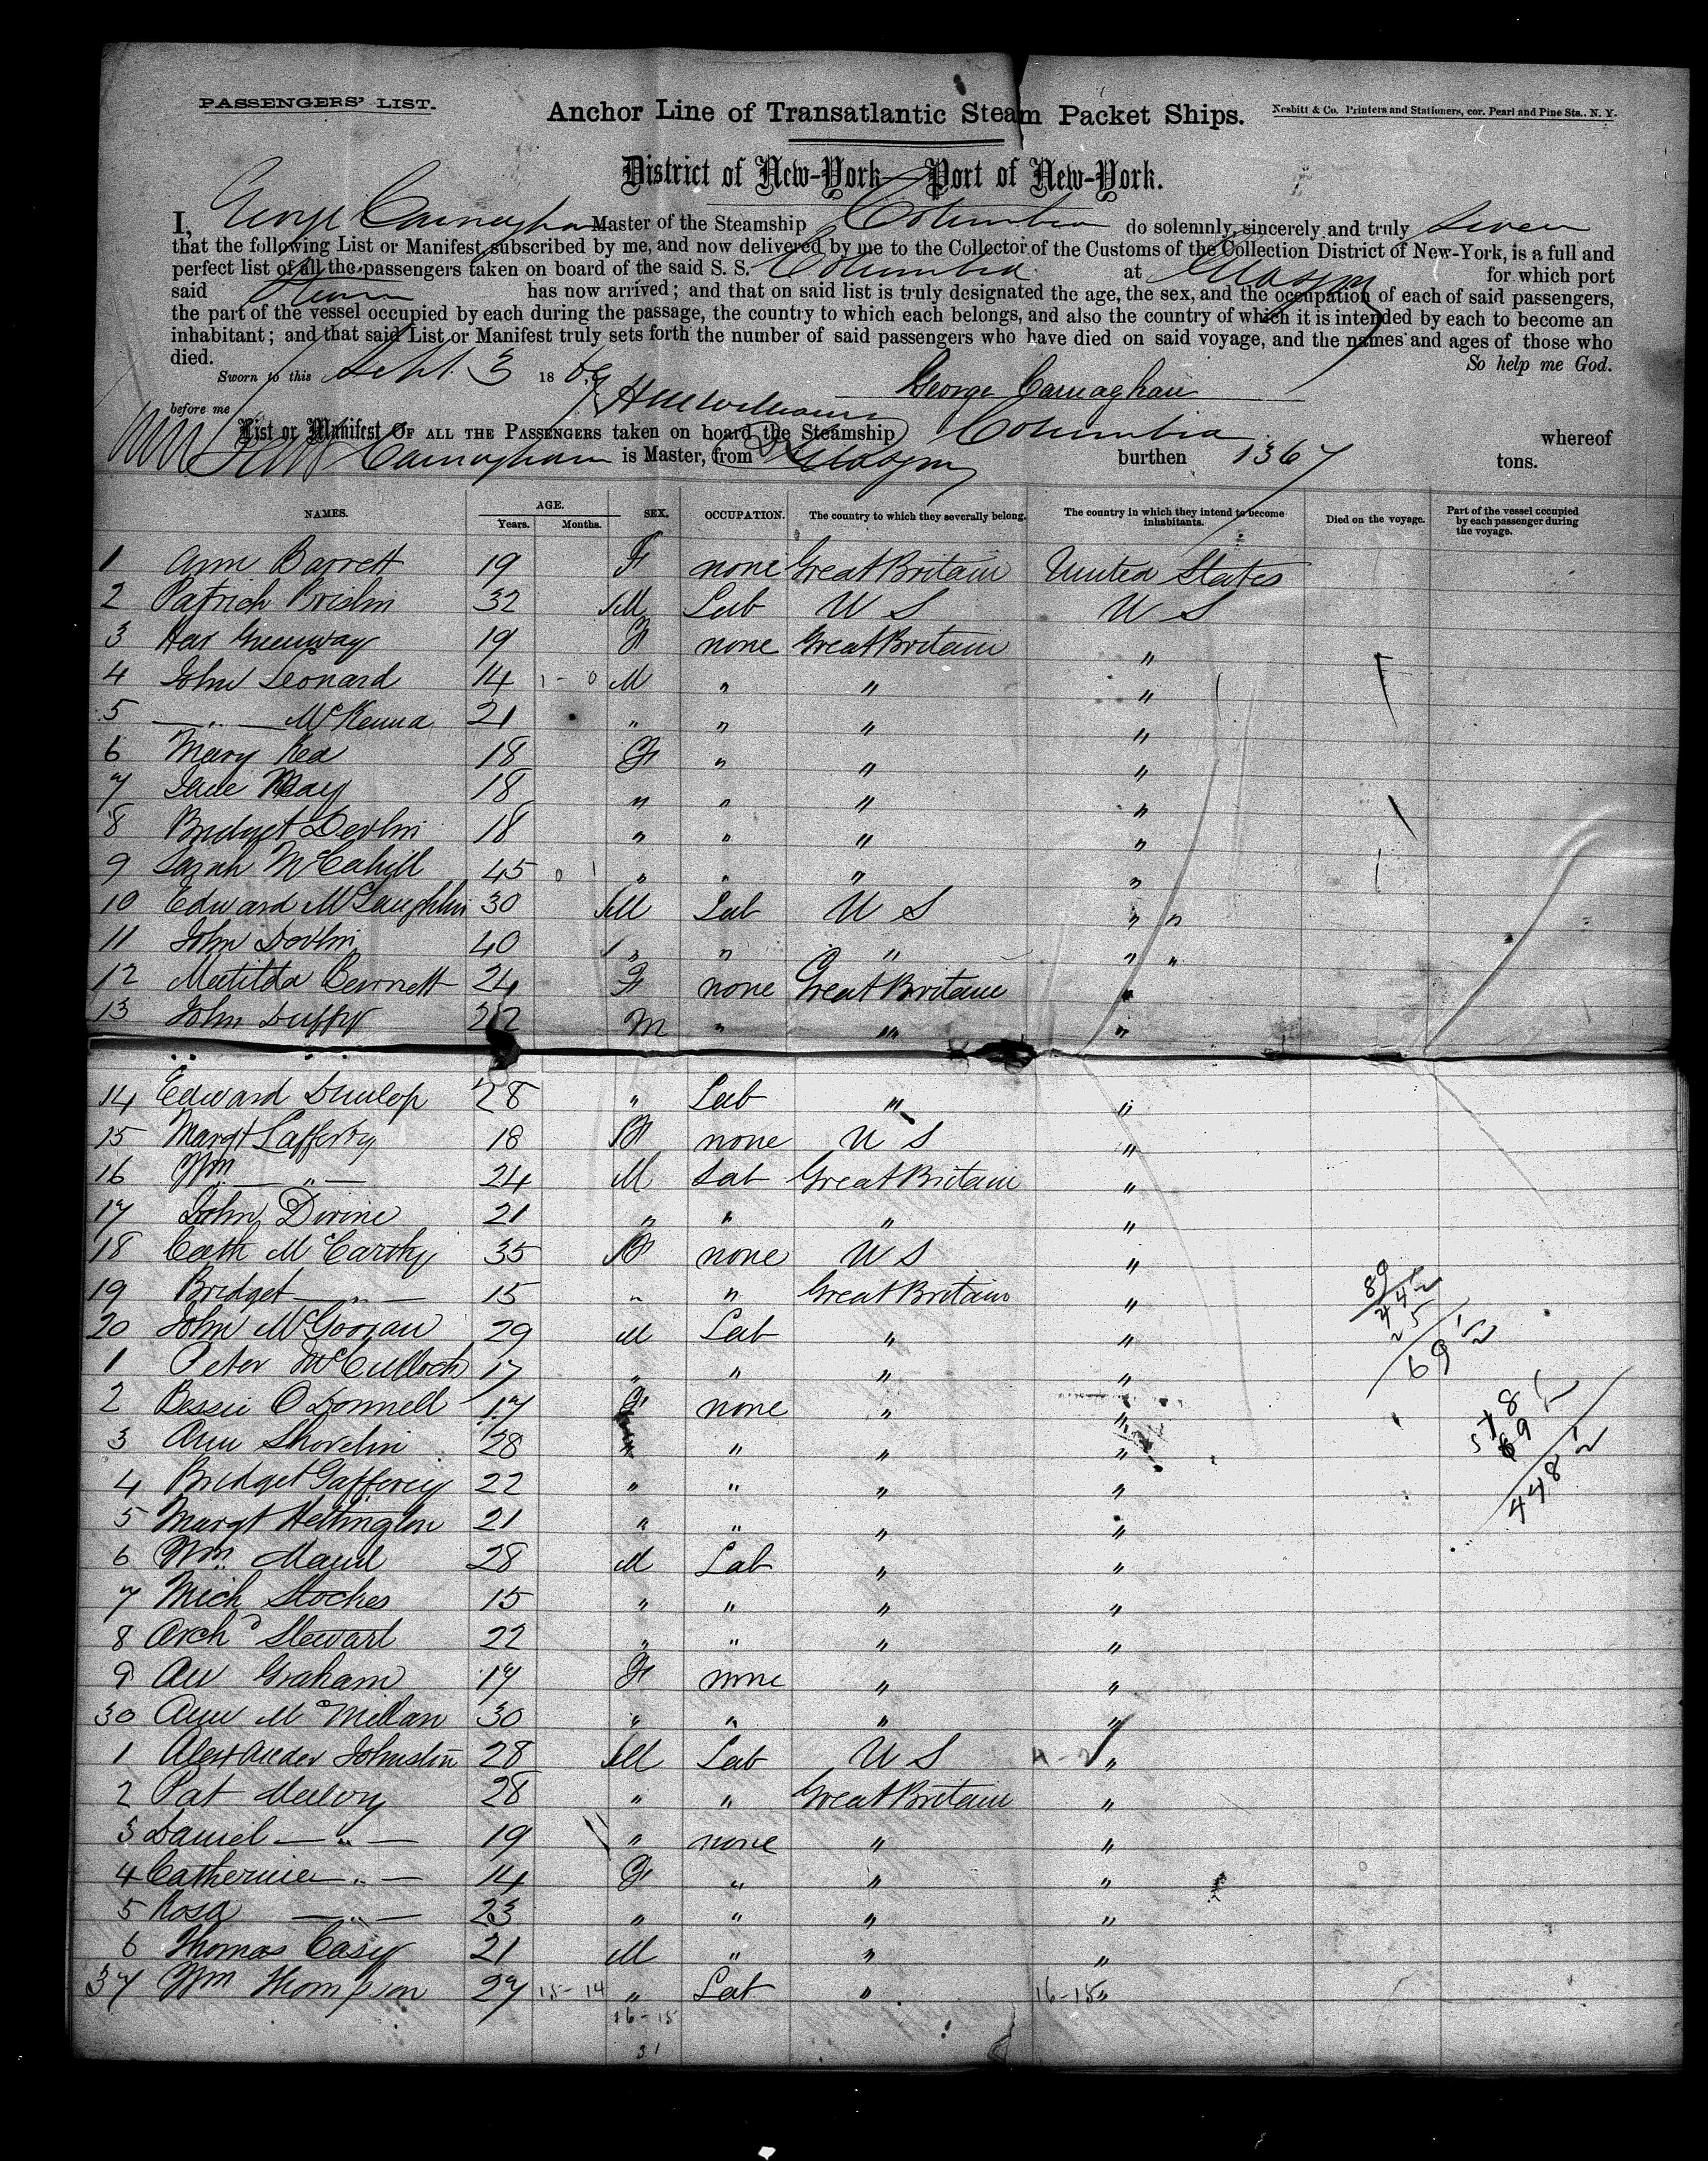 PASSENGERS' LIST.
Anchor Line of Transatlantic Steam Packet Ships.
Nesbitt & Co. Printers and Stationers, cor. Pearl and Pine Sts., N. Y.
District of New-York—Port of New-York.
I, George Carnaghan Master of the Steamship Columbia do solemnly, sincerely and truly swear
that the following List or Manifest, subscribed by me, and now delivered by me to the Collector of the Customs of the Collection District of New-York, is a full and
perfect list of all the passengers taken on board of the said S. S. Columbia at Glasgow for which port
said has now arrived; and that on said list is truly designated the age, the sex, and the occupation of each of said passengers,
the part of the vessel occupied by each during the passage, the country to which each belongs, and also the country of which it is intended by each to become an
inhabitant; and that said List or Manifest truly sets forth the number of said passengers who have died on said voyage, and the names and ages of those who
died. So help me God.
Sworn to this Sept. 3 1869
George Carnaghan
before me
List or Manifest OF ALL THE PASSENGERS taken on board the Steamship Columbia whereof
Carnaghan is Master, from Glasgow burthen 1367 tons.
NAMES. AGE. Years. Months. SEX. OCCUPATION. The country to which they severally belong. The country in which they intend to become inhabitants. Died on the voyage. Part of the vessel occupied by each passenger during the voyage.
1 Ann Barrett 19 F none Great Britain United States
2 Patrick 32 M Lab U S U S
3 Greenway 19 F none Great Britain "
4 John Leonard 14 M " " "
5 — " — McKenna 21 " " " "
6 Mary Rea 18 F " " "
7 Jane May 18 " " " "
8 Bridget Devlin 18 " " " "
9 Sarah McCahill 45 " " " "
10 Edward McLaughlin 30 M Lab U S " "
11 John Devlin 40 " " " " "
12 Matilda 24 F none Great Britain "
13 John Duffy 22 M " " "
14 Edward Dunlop 28 " Lab " "
15 Margt Lafferty 18 F none U S "
16 Wm — " — 24 M Lab Great Britain "
17 John Divine 21 " " " "
18 Cath McCarthy 35 F none U S "
19 Bridget — " — 15 " " Great Britain "
20 John 29 M Lab " "
1 Peter McCulloch 17 " " " "
2 Bessie O'Donnell 17 F none " "
3 Ann Shovelin 28 " " " "
4 Bridget Gafferey 22 " " " "
5 Margt Hettington 21 " " " "
6 Wm. 28 M Lab " "
7 Mich Stockes 15 " " " "
8 Archd Stewart 22 " " " "
9 Graham 17 F none " "
30 Ann McMillan 30 " " " "
1 Alexander Johnston 28 M Lab U S "
2 Pat 28 " " Great Britain "
3 Daniel — " — 19 " none " "
4 Catherine " — 14 F " " "
5 Rosa — " — 23 " " " "
6 Thomas Casey 21 M " " "
37 Wm Thompson 27 15-14 " Lab " 16-15 "
16-15
31